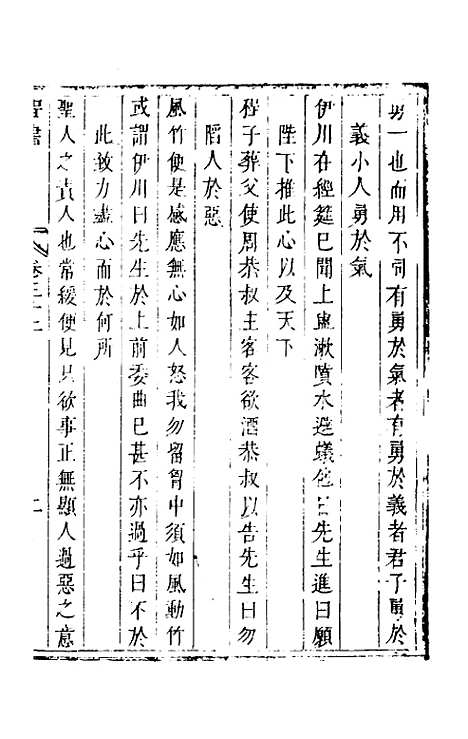 勇一也而用不同有勇於氣者有勇於義者君子勇於
義小人勇於氣
伊川在經筵巳聞上盥漱噴水避蟻他日先生進曰願
陛下推此心以及天下
程子葬父使周恭叔主客客欲酒恭叔以告先生曰勿
陷人於惡
風竹便是感應無心如人怒我勿留胷中須如風動竹
或謂伊川曰先生於上前委曲巳甚不亦過乎曰不於
此致力盡心而於何所
聖人之責人也常緩便見只欲事正無顯人過惡之意
卷三十二
二